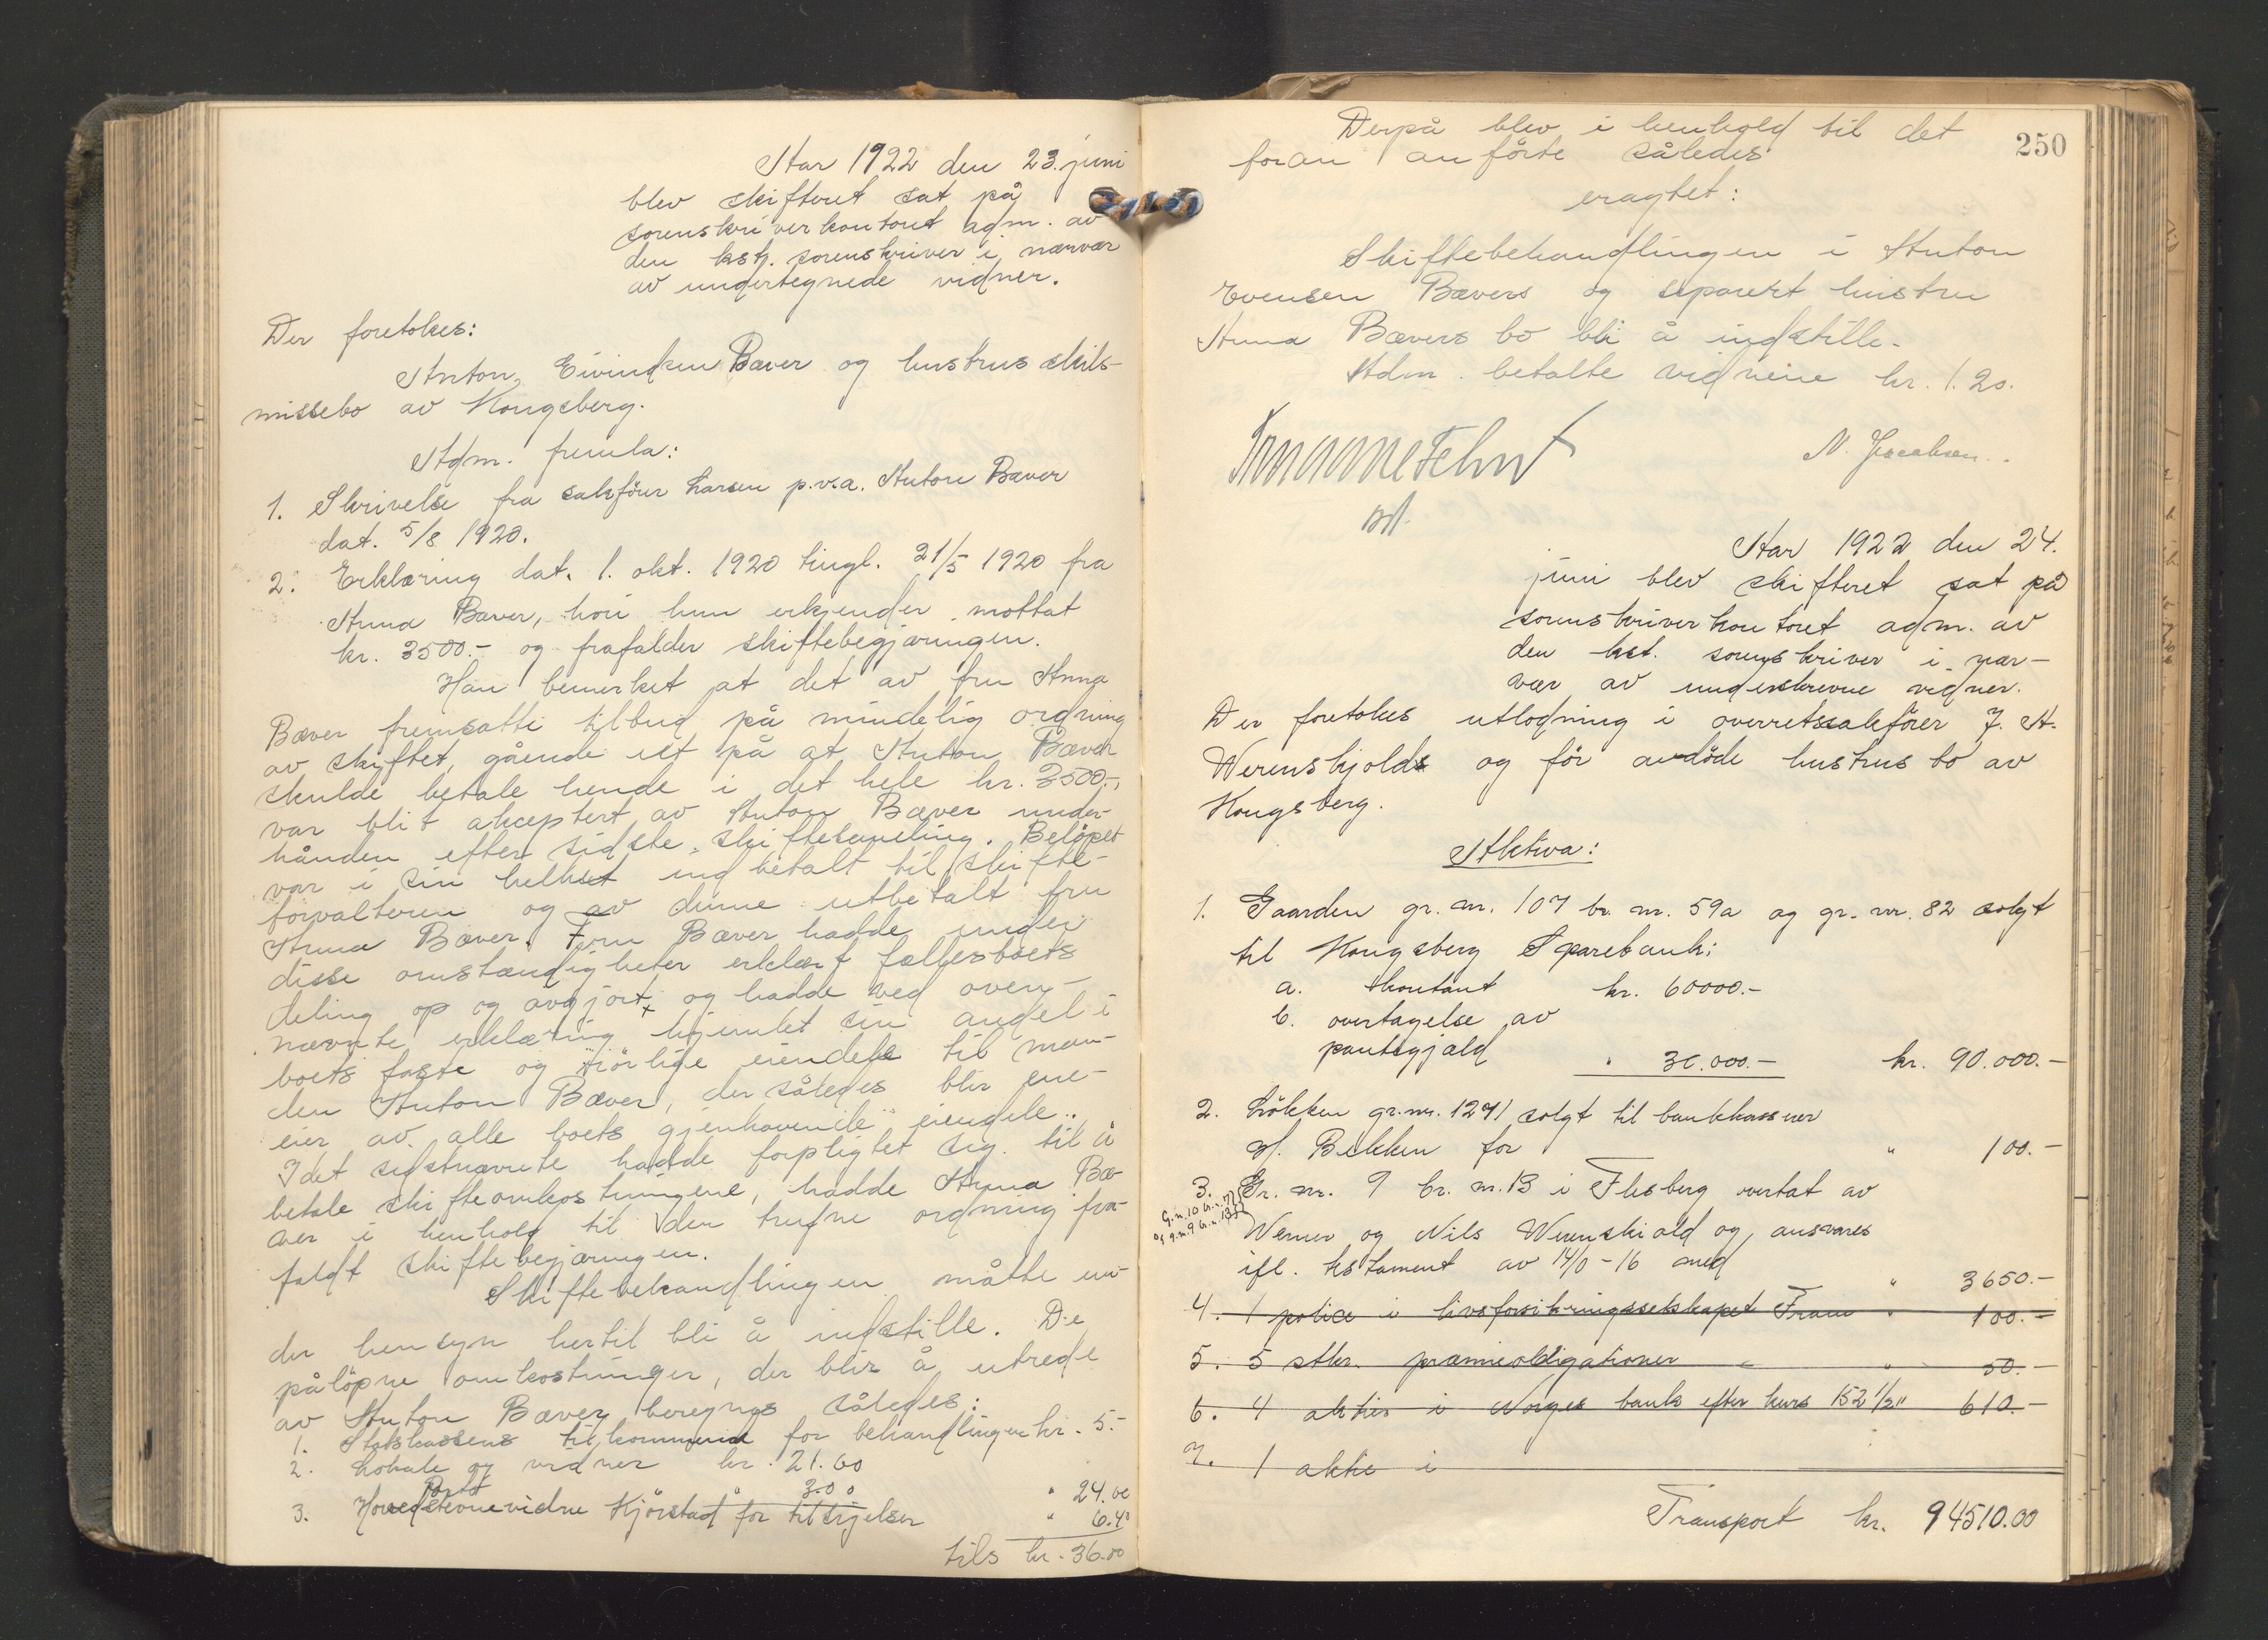 Aar 1922 den 23. juni
blev skifteret sat på
sorenskriverkontoret adm. av
den kst. sorenskriver i nærvær
av undertegnede vidner.
Der foretokes:
Anton Eivindsen Bæver og hustrus skils-
missebo av Kongsberg.
Adm. fremla:
1. Skrivelse fra sakfører Larsen p.v.a. Anton Bæver
dat. 5/8 1920.
2. Erklæring dat. 1. okt. 1920 tingl. 21/5 1920 fra
Anna Bæver, hvori hun erkjender mottat
kr. 3500.- og frafalder skiftebegjæringen.
Han bemerket at det av fru Anna
Bæver fremsatte tilbud på mindelig ordning
av skiftet, gående ut på at Anton Bæver
skulde betale hende i det hele kr. 3500.-,
var blit akceptert av Anton Bæver under-
hånden efter sidste skiftesamling. Beløpet
var i sin helhet indbetalt til skifte-
forvalteren og av denne utbetalt fru
Anna Bæver. Fru Bæver hadde under
disse omstændigheter erklært fællesboets
deling op og avgjort, og hadde ved oven-
nævnte erklæring hjemlet sin andel i
boets faste og rørlige eiendele til man-
den Anton Bæver, der således blir ene-
eier av alle boets gjenhavende eiendele.
Idet sidstnævnte hadde forpligtet sig til å
betale skifteomkostningene, hadde Anna Bæ-
ver i henhold til den trufne ordning fra-
faldt skiftebegjæringen.
Skiftebehandlingen måtte un-
der hensyn hertil bli å indstille. De
påløpne omkostninger, der blir å utrede
av Anton Bæver beregnes således:
1. Statskassens tilkommende for behandlingen kr. 5.-
2. Lokale og vidner kr. 21.60
Porto 3.00 " 24.60
3. Hovedstevnevidne Kjørstad for tilsigelser " 6.40
tils kr. 36.00
250
Derpå blev i henhold til det
foran anførte således
eragtet:
Skiftebehandlingen i Anton
Evensen Bævers og separert hustru
Anna Bævers bo bli å indstille.
Adm. betalte vidnene kr. 1.20.
N. Jacobsen.
Aar 1922 den 24.
juni blev skifteret sat på
sorenskriverkontoret adm. av
den kst. sorenskriver i nær-
vær av underskrevne vidner.
Der foretokes utlodning i overretssakfører J. A.
Werenskjolds og før avdøde hustrus bo av
Kongsberg.
Aktiva:
1. Gaarden gr. nr. 107 br. nr. 59a og gr. nr. 82 solgt
til Kongsberg Sparebank:
a. kontant kr. 60000.-
b. overtagelse av
pantegjæld " 30.000.- kr. 90.000.-
2. Løkken gr. nr. 1271 solgt til bankkasserer
Bekken for " 100.-
3. Gr. nr. 9 br. nr. 13 i Flesberg overtat av
G.n. 10 b.n.
og g.n. 9 b.n. 13
Werner og Nils Werenskiold og ansvares
ifl. testament av 14/0-16 med " 3650.-
4. 1 police i livsforsikringsselskapet Fram " 100.-
5. 5 stkr. præmieobligationer " 50.-
6. 4 aktier i Norges bank efter kurs 152 1/2 " 610.-
7. 1 aktie i
Transport kr. 94510.00